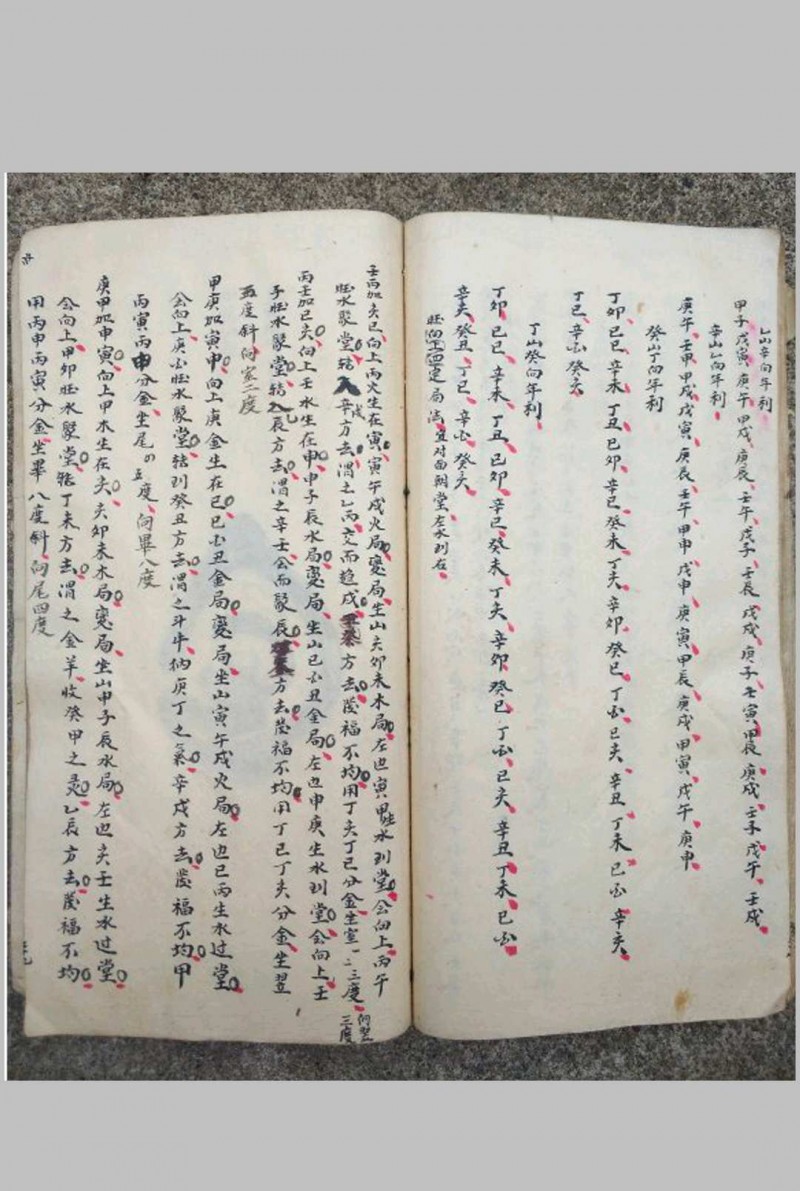 乙山辛向年利
甲子、戊寅、庚午、甲戌、庚辰、壬午、戊子、壬辰、戊戌、庚子、壬寅、甲辰、庚戌、壬子、戊午、壬戌、
辛山乙向年利、
庚午、壬申、甲戌、戊寅、庚辰、壬午、甲申、戊申、庚寅、甲辰、庚戌、甲寅、戊午、庚申、
癸山丁向年利
丁卯、己巳、辛未、丁丑、己卯、辛巳、癸未、丁亥、辛卯、癸巳、丁酉、己亥、辛丑、丁未、己酉、辛亥、
丁巳、辛酉、癸亥、
丁山癸向年利、
丁卯、己巳、辛未、丁丑、己卯、辛巳、癸未、丁亥、辛卯、癸巳、丁酉、己亥、辛丑、丁未、己酉、
辛亥、癸丑、丁巳、辛酉、癸亥、
旺向 定局法、宜对面朝堂、左水到右、
壬丙加亥巳、向上丙火生在寅、寅午戌火局、变局坐山亥卯未木局、左边寅甲生水到堂、会向上丙午
旺水聚堂、辖入辛戌方去、谓之乙丙交而趋戌、方去、发福不均、用丁亥丁巳分金、坐室一二三度、向翌三度
丙壬加巳亥、向上壬水生在申、申子辰水局、变局坐山巳酉丑金局、左边申庚生水到堂、会向上壬
子旺水聚堂、辖入乙辰方去、谓之辛壬会而聚辰、方去、发福不均、用丁巳丁亥分金、坐翌
五度斜、向室二度
甲庚加寅申、向上庚金生在巳、巳酉丑金局、变局坐山寅午戌火局、左边巳丙生水过堂、
会向上庚酉旺水聚堂、辖到癸丑方去、谓之斗牛纳庚丁之气、辛戌方去、发福不均、甲
丙寅丙申分金、坐尾四五度、向毕八度
庚甲加申寅、向上甲木生在亥、亥卯未木局、变局坐山申子辰水局、左边亥壬生水过堂、
会向上甲卯旺水聚堂、辖丁未方去、谓之金羊收癸甲之灵、乙辰方去、发福不均、
用丙申丙寅分金、坐毕八度斜、向尾四度